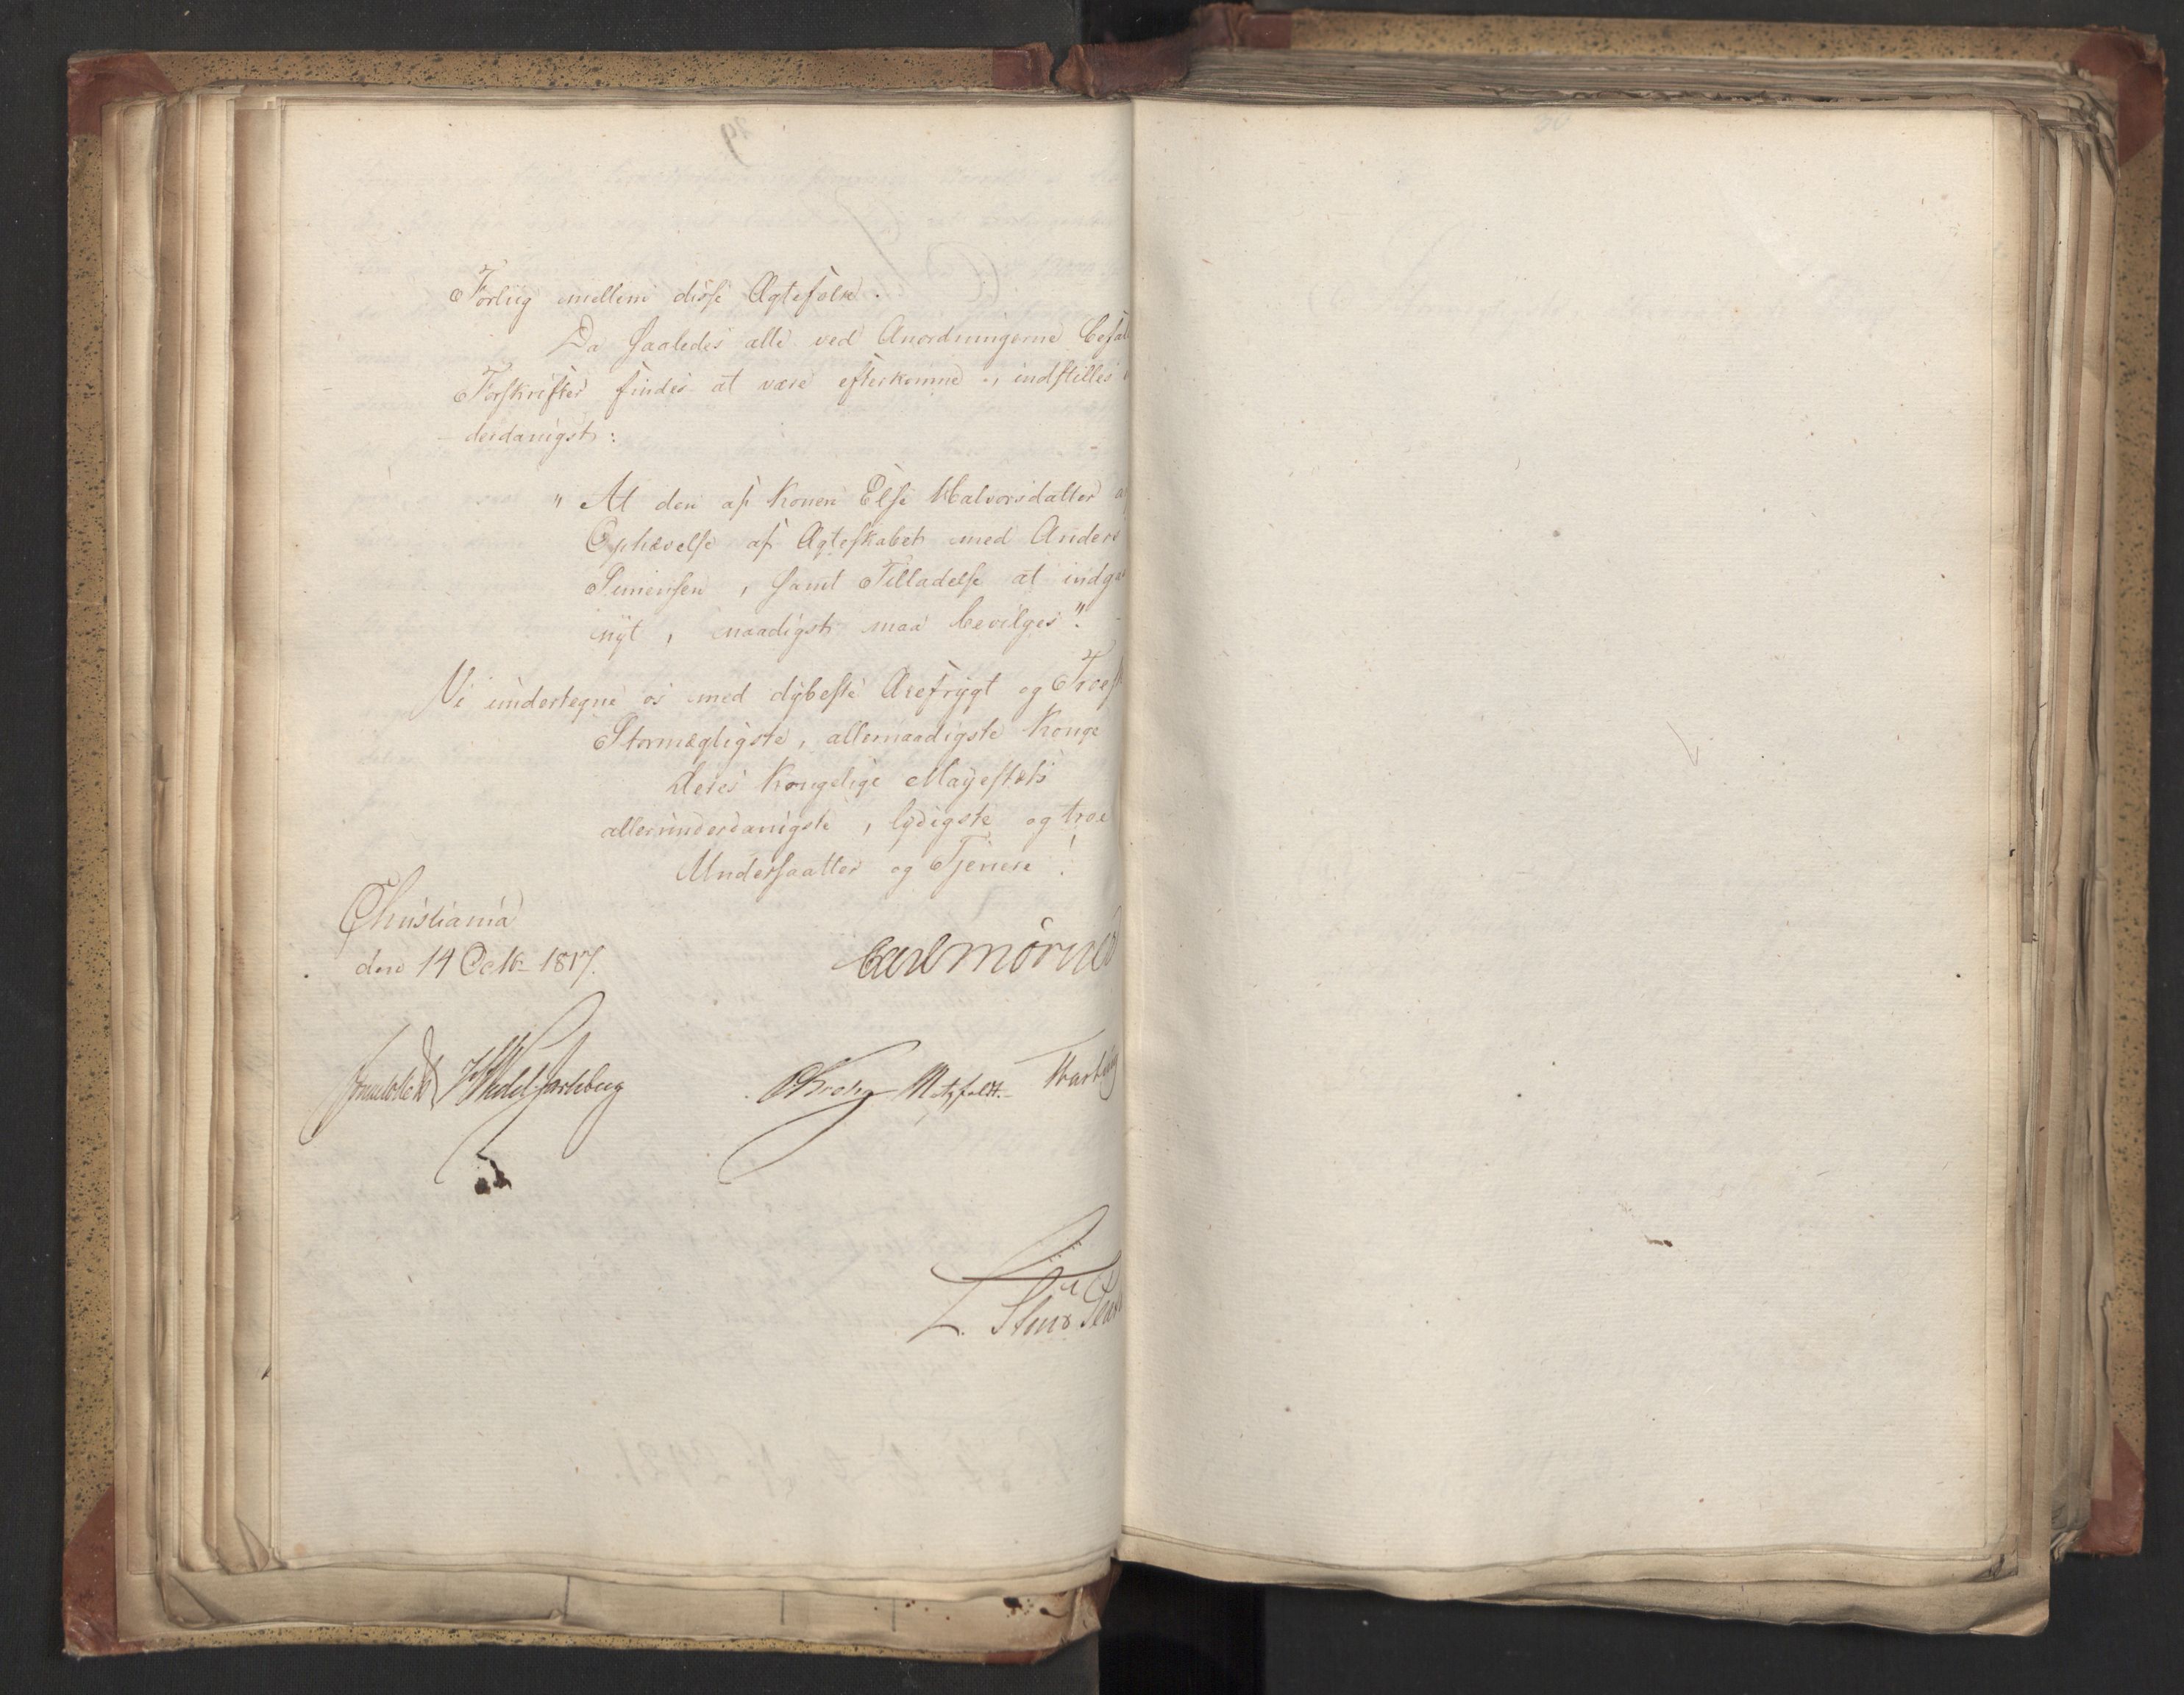 Forliig mellem disse Ægtefolk.
Da saaledes alle ved Anordningerne befal
Forskrifter findes at være efterkomne, indstilles
derdanigst:
"At den af Konen Else Halvorsdatter
Ophævelse af Ægteskabet med Anders
Simensen, samt Tilladelse at indgaa
nyt, naadigst maa bevilges".
Vi undertegne os med dybeste Ærefrygt og Troes
Stormægtigste, allernaadigste Konge
Deres Kongelige Mayestæts
allerunderdanigste, lydigste og troe
Undersaatter og Tjenere!
Christiania
den 14 Octbr 1817.
Carl Mörner
Sommerhielm HWedel Jarlsberg
CKrohg Motzfeldt.
L. Stud Plat